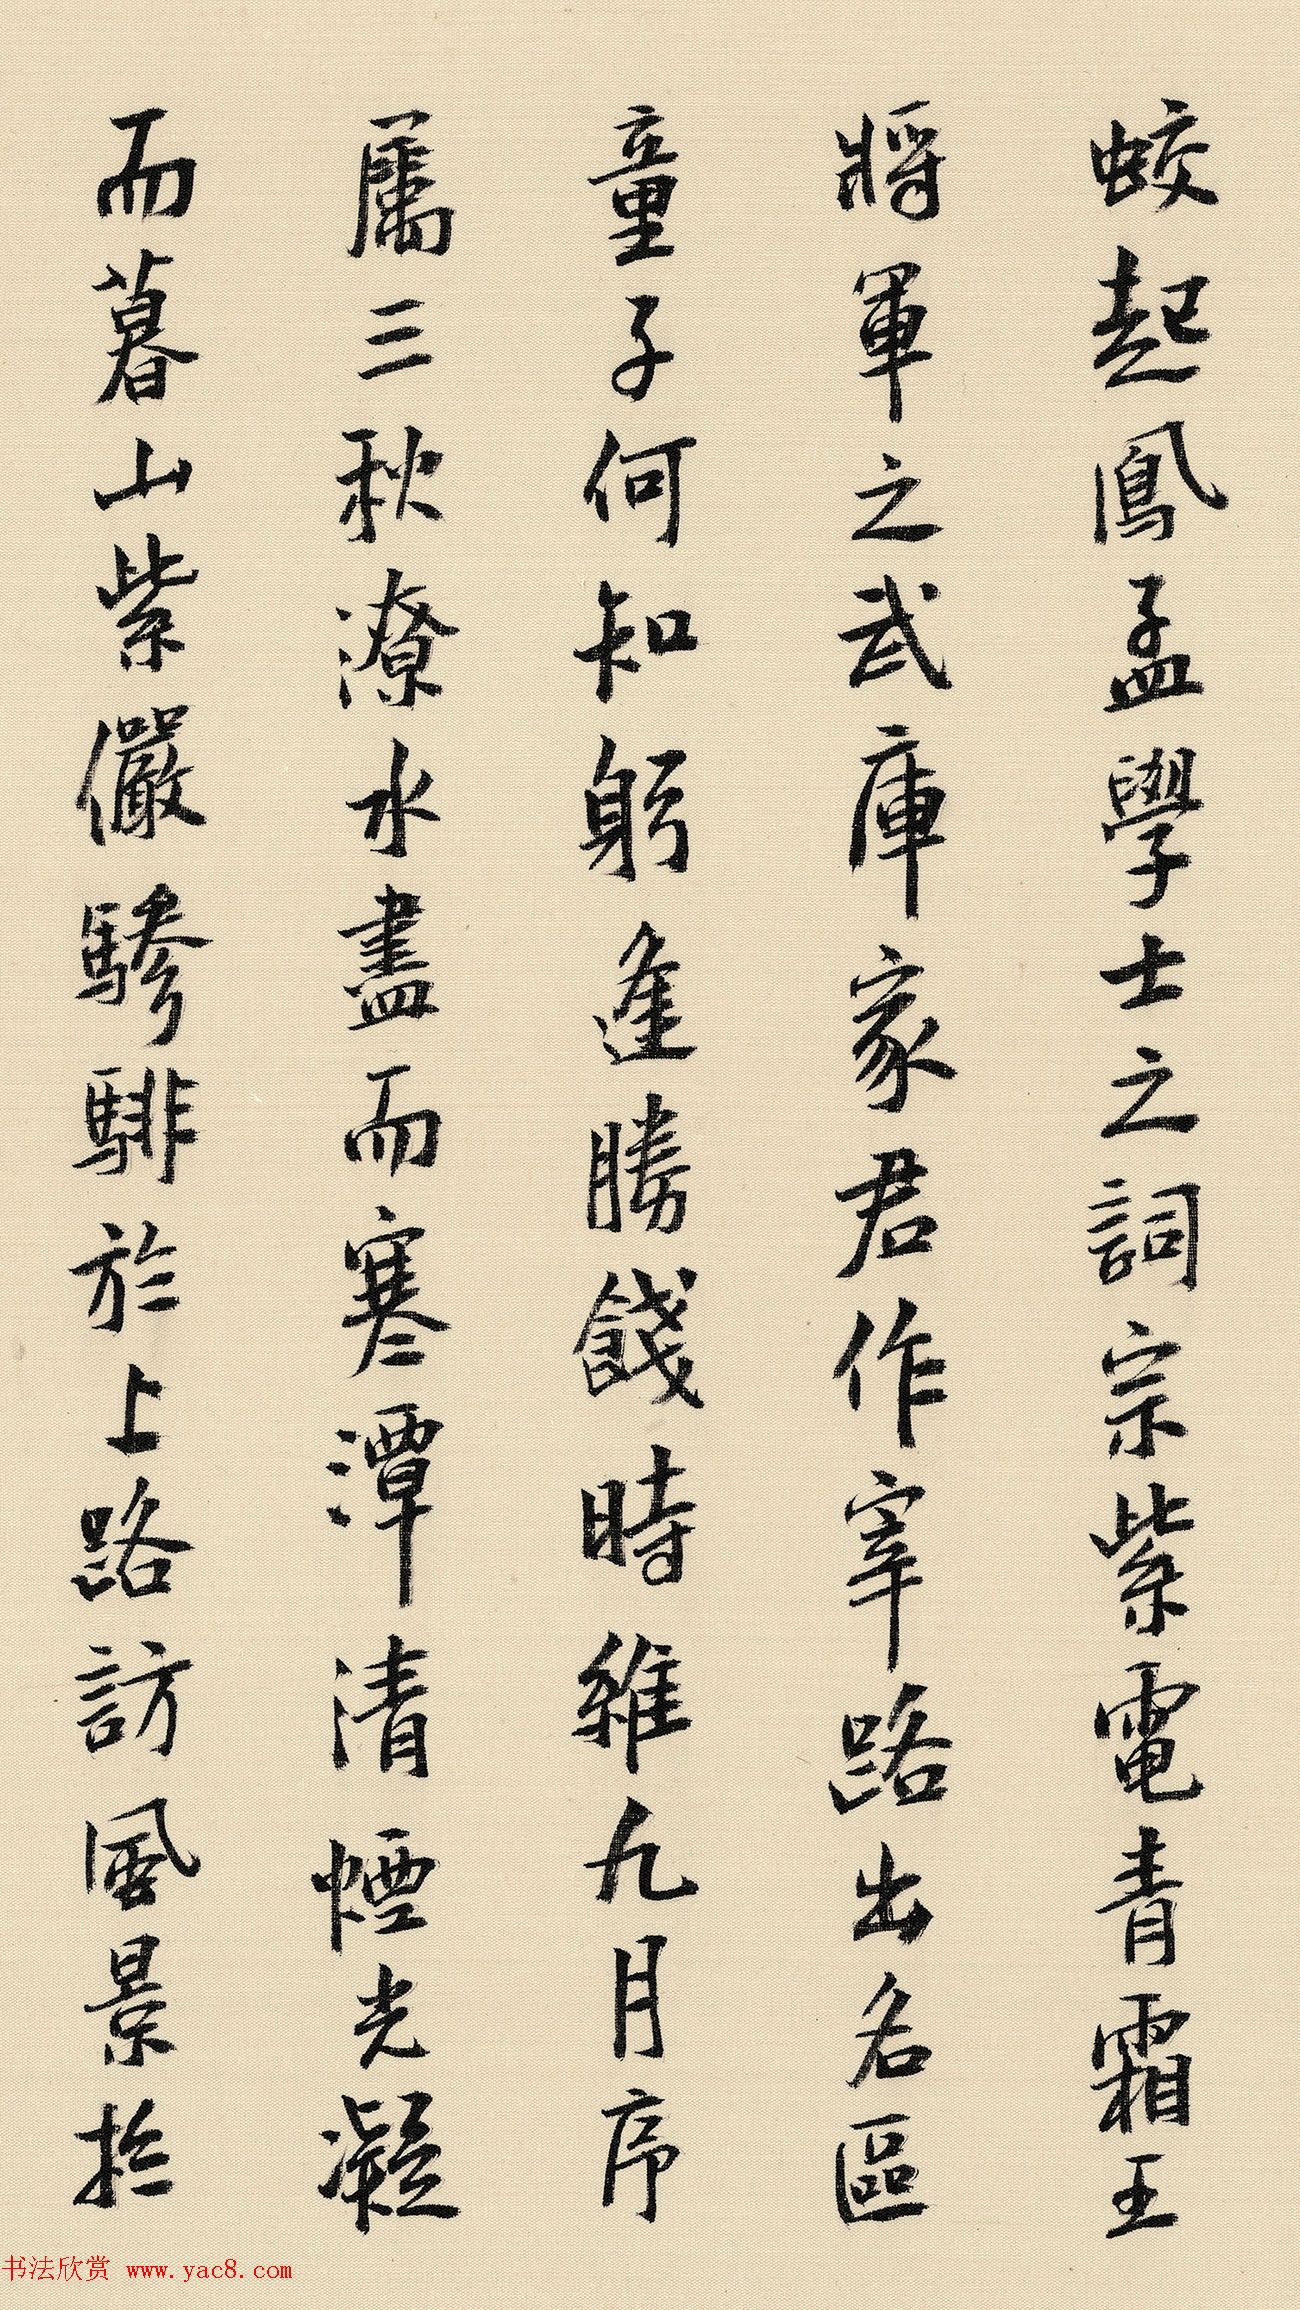 蛟起鳳孟學士之詞宗紫電青霜王
將軍之武庫家君作宰路出名區
童子何知躬逢勝餞時維九月序
屬三秋潦水盡而寒潭清煙光凝
而暮山紫儼驂騑於上路訪風景於
书法欣赏 www.yac8.com